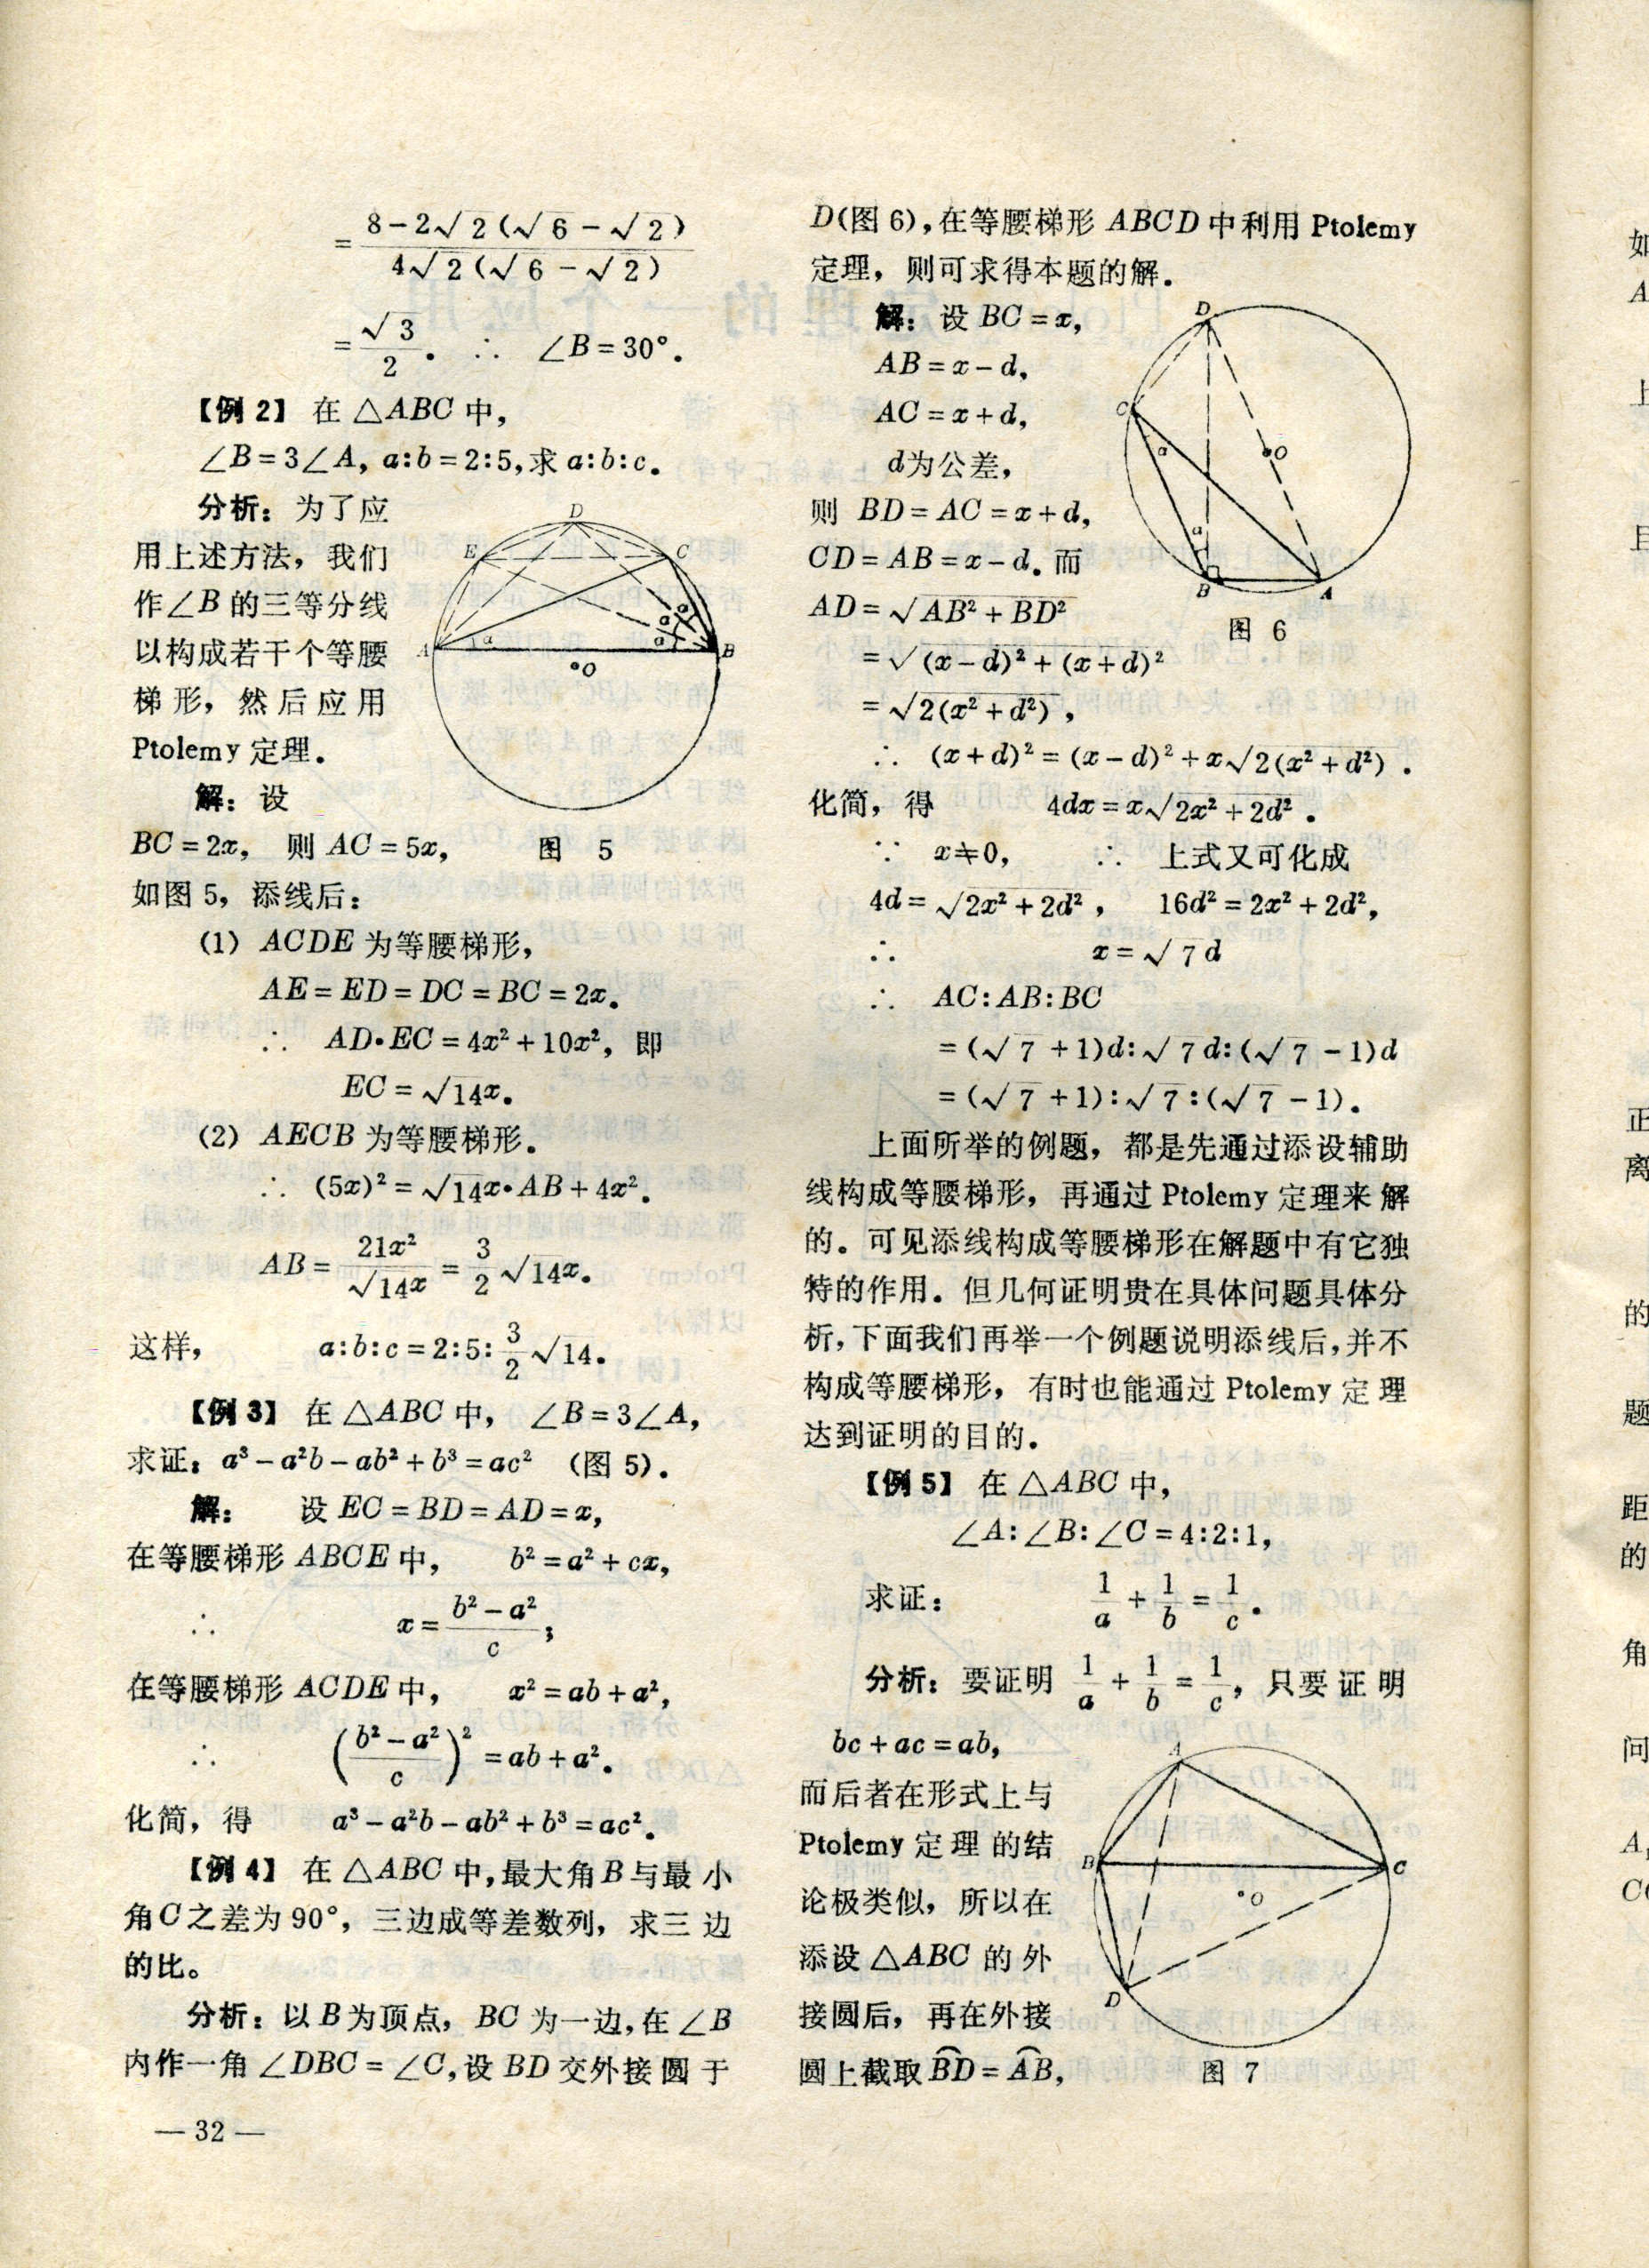 = 8-2√2(√6-√2) / 4√2(√6-√2)
= √3/2. ∴ ∠B=30°.
【例2】 在 △ABC 中,
∠B=3∠A, a:b=2:5, 求 a:b:c.
分析: 为了应
用上述方法, 我们
作∠B 的三等分线
以构成若干个等腰
梯形, 然后应用
Ptolemy 定理.
解: 设
BC=2x, 则 AC=5x,
如图 5, 添线后:
D
E
C
A
α
α
α
α
B
O
图 5
(1) ACDE 为等腰梯形,
AE=ED=DC=BC=2x.
∴ AD·EC=4x²+10x², 即
EC=√14x.
(2) AECB 为等腰梯形.
∴ (5x)²=√14x·AB+4x².
AB= 21x²/√14x = 3/2 √14x.
这样, a:b:c=2:5: 3/2 √14.
【例3】 在 △ABC 中, ∠B=3∠A,
求证: a³-a²b-ab²+b³=ac² (图 5).
解: 设 EC=BD=AD=x,
在等腰梯形 ABCE 中, b²=a²+cx,
∴ x= (b²-a²)/c;
在等腰梯形 ACDE 中, x²=ab+a²,
∴ ((b²-a²)/c)² =ab+a².
化简, 得 a³-a²b-ab²+b³=ac².
【例4】 在 △ABC 中, 最大角 B 与最小
角 C 之差为 90°, 三边成等差数列, 求三边
的比。
分析: 以 B 为顶点, BC 为一边, 在 ∠B
内作一角 ∠DBC=∠C, 设 BD 交外接圆于
—32—
D(图 6), 在等腰梯形 ABCD 中利用 Ptolemy
定理, 则可求得本题的解.
解: 设 BC=x,
AB=x-d,
AC=x+d,
d为公差,
则 BD=AC=x+d,
CD=AB=x-d. 而
AD=√AB²+BD²
=√(x-d)²+(x+d)²
=√2(x²+d²),
D
C
α
O
α
B
A
图 6
∴ (x+d)²=(x-d)²+x√2(x²+d²).
化简, 得 4dx=x√2x²+2d².
∵ x≠0, ∴ 上式又可化成
4d=√2x²+2d², 16d²=2x²+2d²,
∴ x=√7d
∴ AC:AB:BC
=(√7+1)d:√7d:(√7-1)d
=(√7+1):√7:(√7-1).
上面所举的例题, 都是先通过添设辅助
线构成等腰梯形, 再通过 Ptolemy 定理来解
的。可见添线构成等腰梯形在解题中有它独
特的作用. 但几何证明贵在具体问题具体分
析, 下面我们再举一个例题说明添线后, 并不
构成等腰梯形, 有时也能通过 Ptolemy 定理
达到证明的目的.
【例5】 在 △ABC 中,
∠A:∠B:∠C=4:2:1,
求证: 1/a + 1/b = 1/c.
分析: 要证明 1/a + 1/b = 1/c, 只要证明
bc+ac=ab,
而后者在形式上与
Ptolemy 定理的结
论极类似, 所以在
添设 △ABC 的外
接圆后, 再在外接
圆上截取 B͡D=A͡B,
A
B
C
O
D
图 7
如
A
上
且
正
离
的
题
距
的
角
问
A,